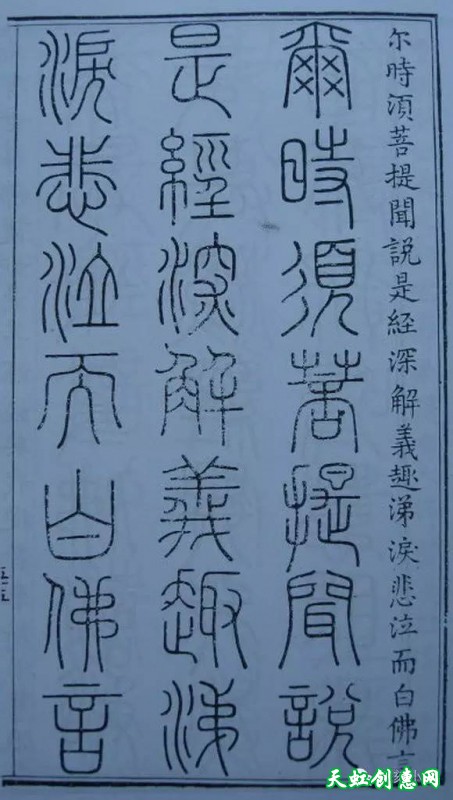 尔時須菩提聞說是経深解義趣涕淚悲泣而白佛言
爾時須菩提聞說
是經深解義趣涕
淚悲泣而白佛言
五十五
天虹创意网